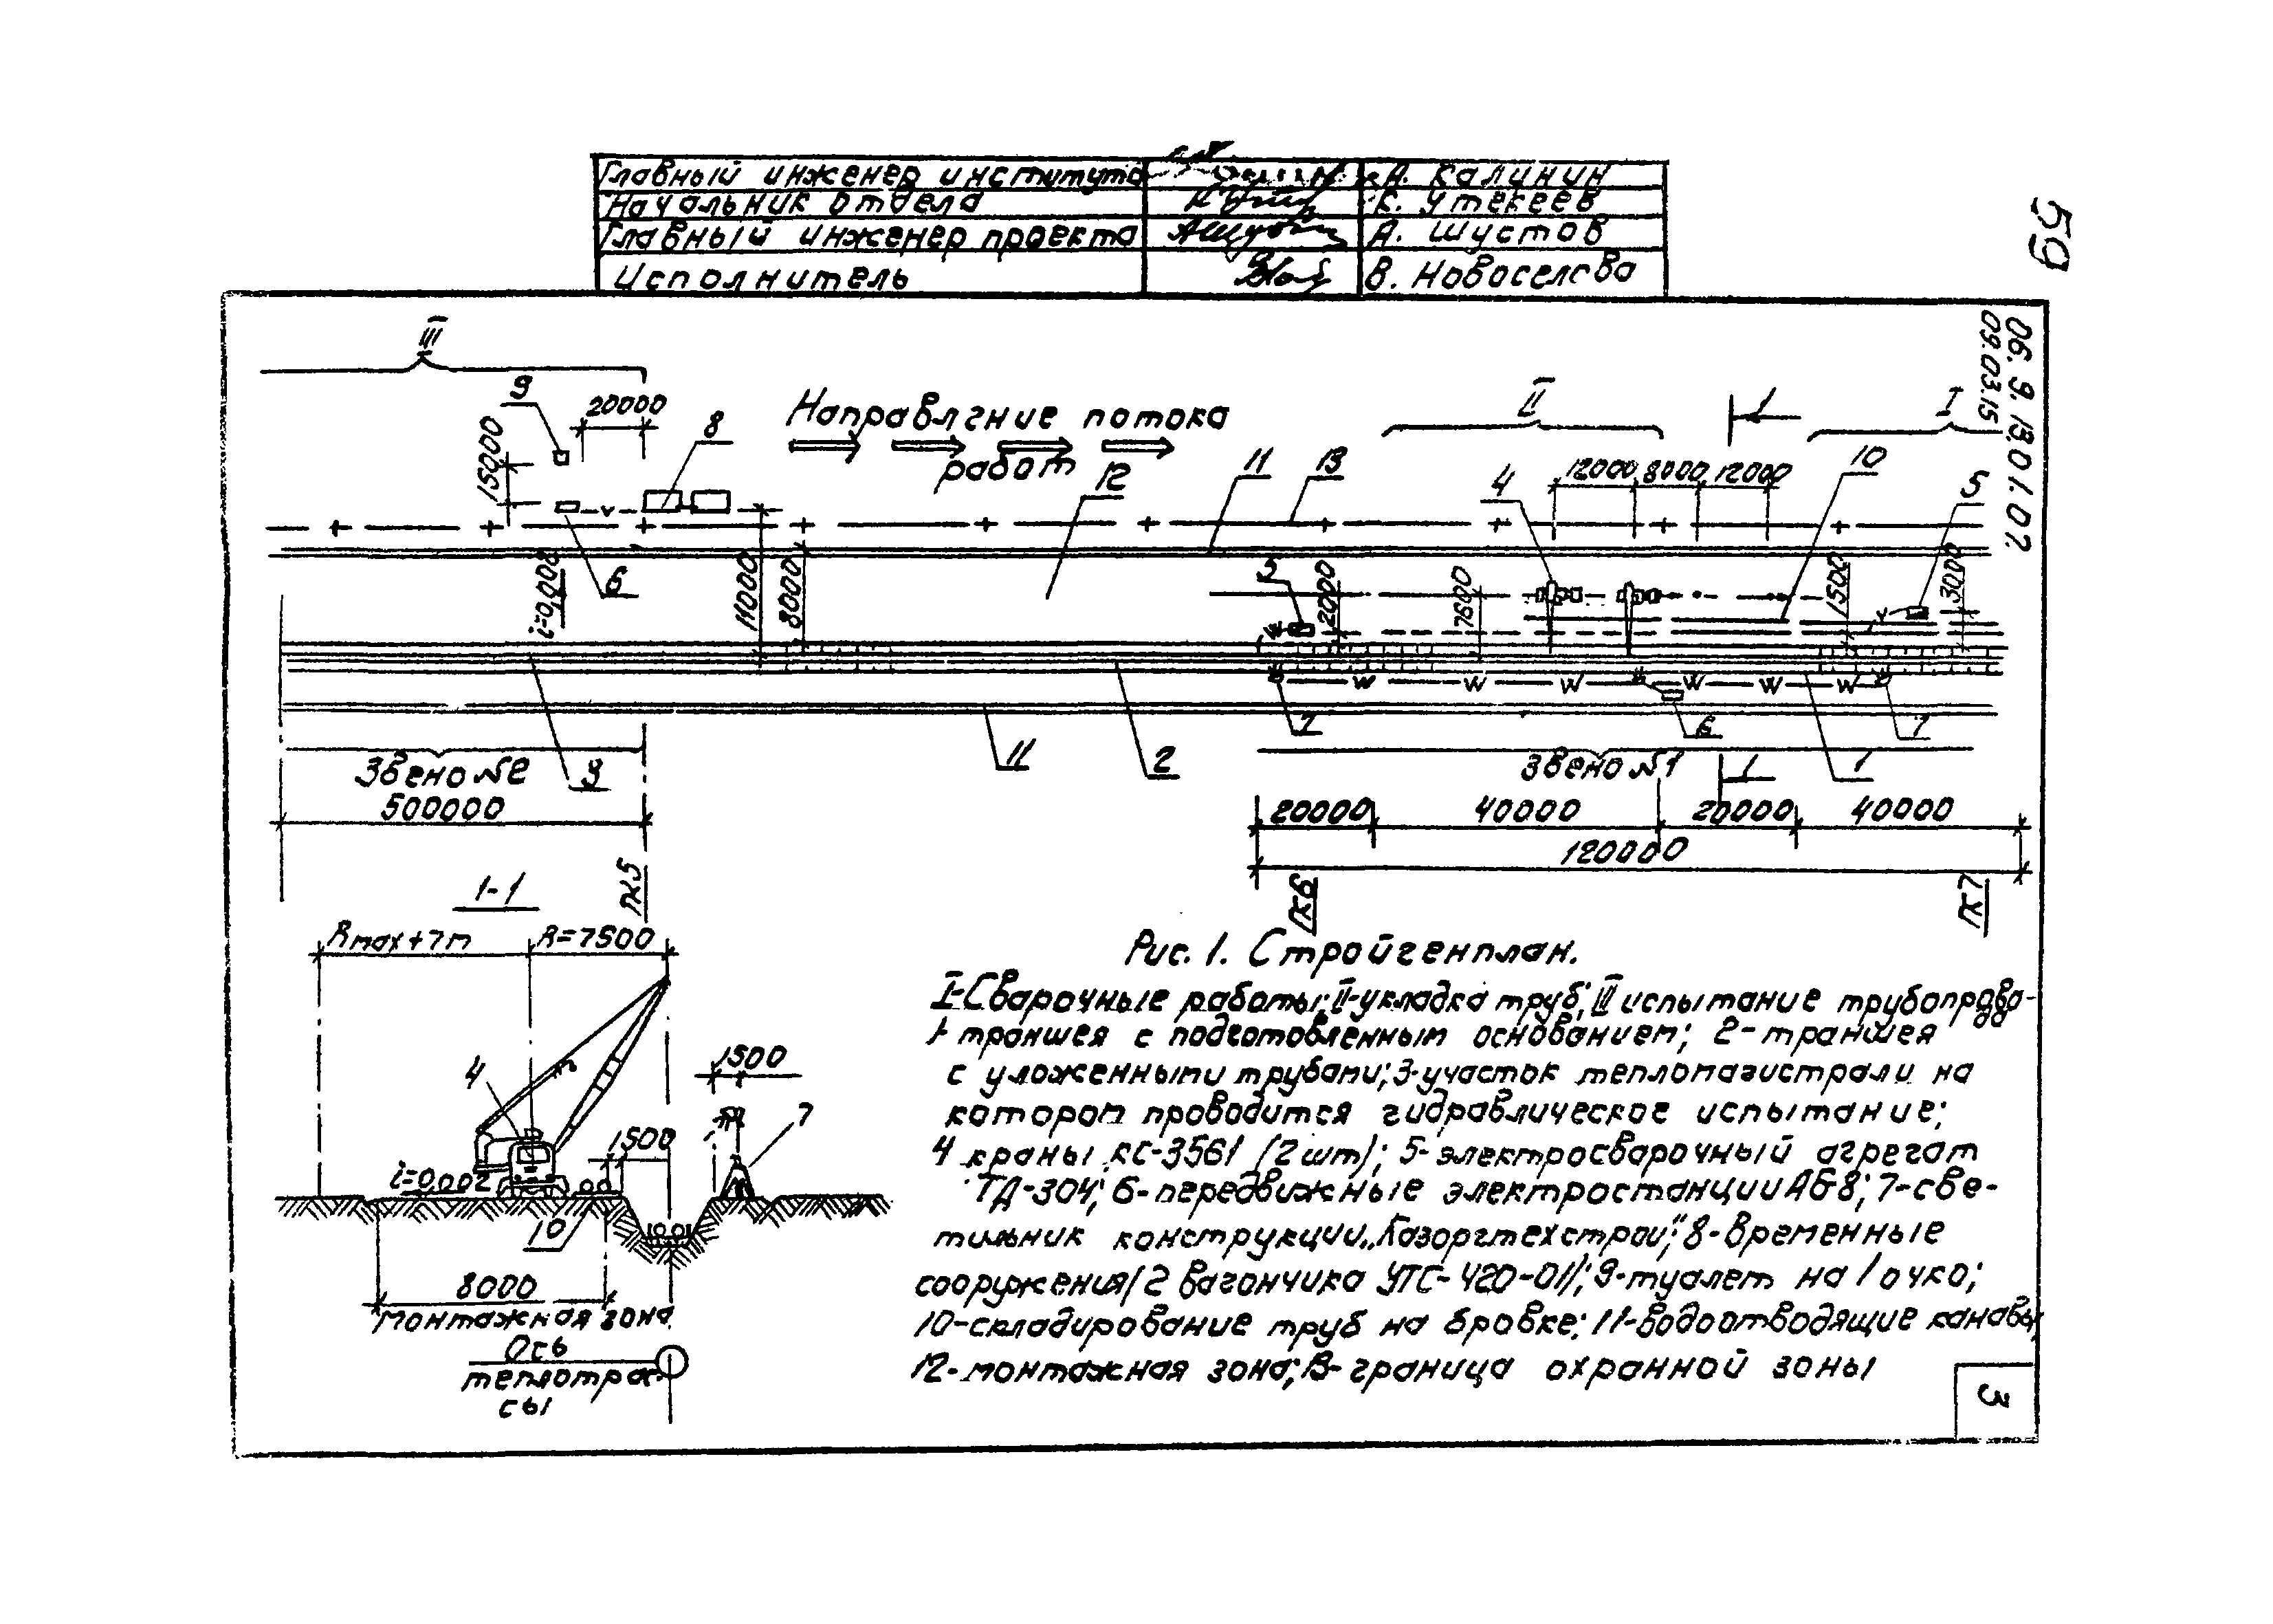 Главный инженер института А. Калинин
Начальник отдела К. Утекеев
Главный инженер проекта А. Шустов
Исполнитель В. Новоселова
59
06. 9. 13. 01. 07.
09.03.15
III
9
20000
8
15000
Направление потока
работ
12
11
13
II
1
I
4
12000 8000 12000
10
5
6
i=0,002
11000
8000
5
2000
7600
1500
3000
Звено №2
3
500000
11
2
7
6
7
Звено №1
1
1
20000 40000 20000 40000
120000
ПК5
ПК6
ПК7
1-1
Rmax+7m R=7500
4
1500
7
1500
i=0.002
10
8000
монтажная зона
Ось
теплотрас
сы
Рис. 1. Стройгенплан.
I-Сварочные работы; II-укладка труб; III испытание трубопрово-
да
1-траншея с подготовленным основанием; 2-траншея
с уложенными трубами; 3-участок тепломагистрали на
котором проводится гидравлическое испытание;
4 краны КС-3561 (2 шт); 5-электросварочный агрегат
ТД-304; 6-передвижные электростанции АБ8; 7-све-
тильник конструкции „Казоргтехстрой"; 8-временные
сооружения (2 вагончика УТС-420-01); 9-туалет на 1 очко;
10-складирование труб на бровке; 11-водоотводящие канавы;
12-монтажная зона; 13-граница охранной зоны
3